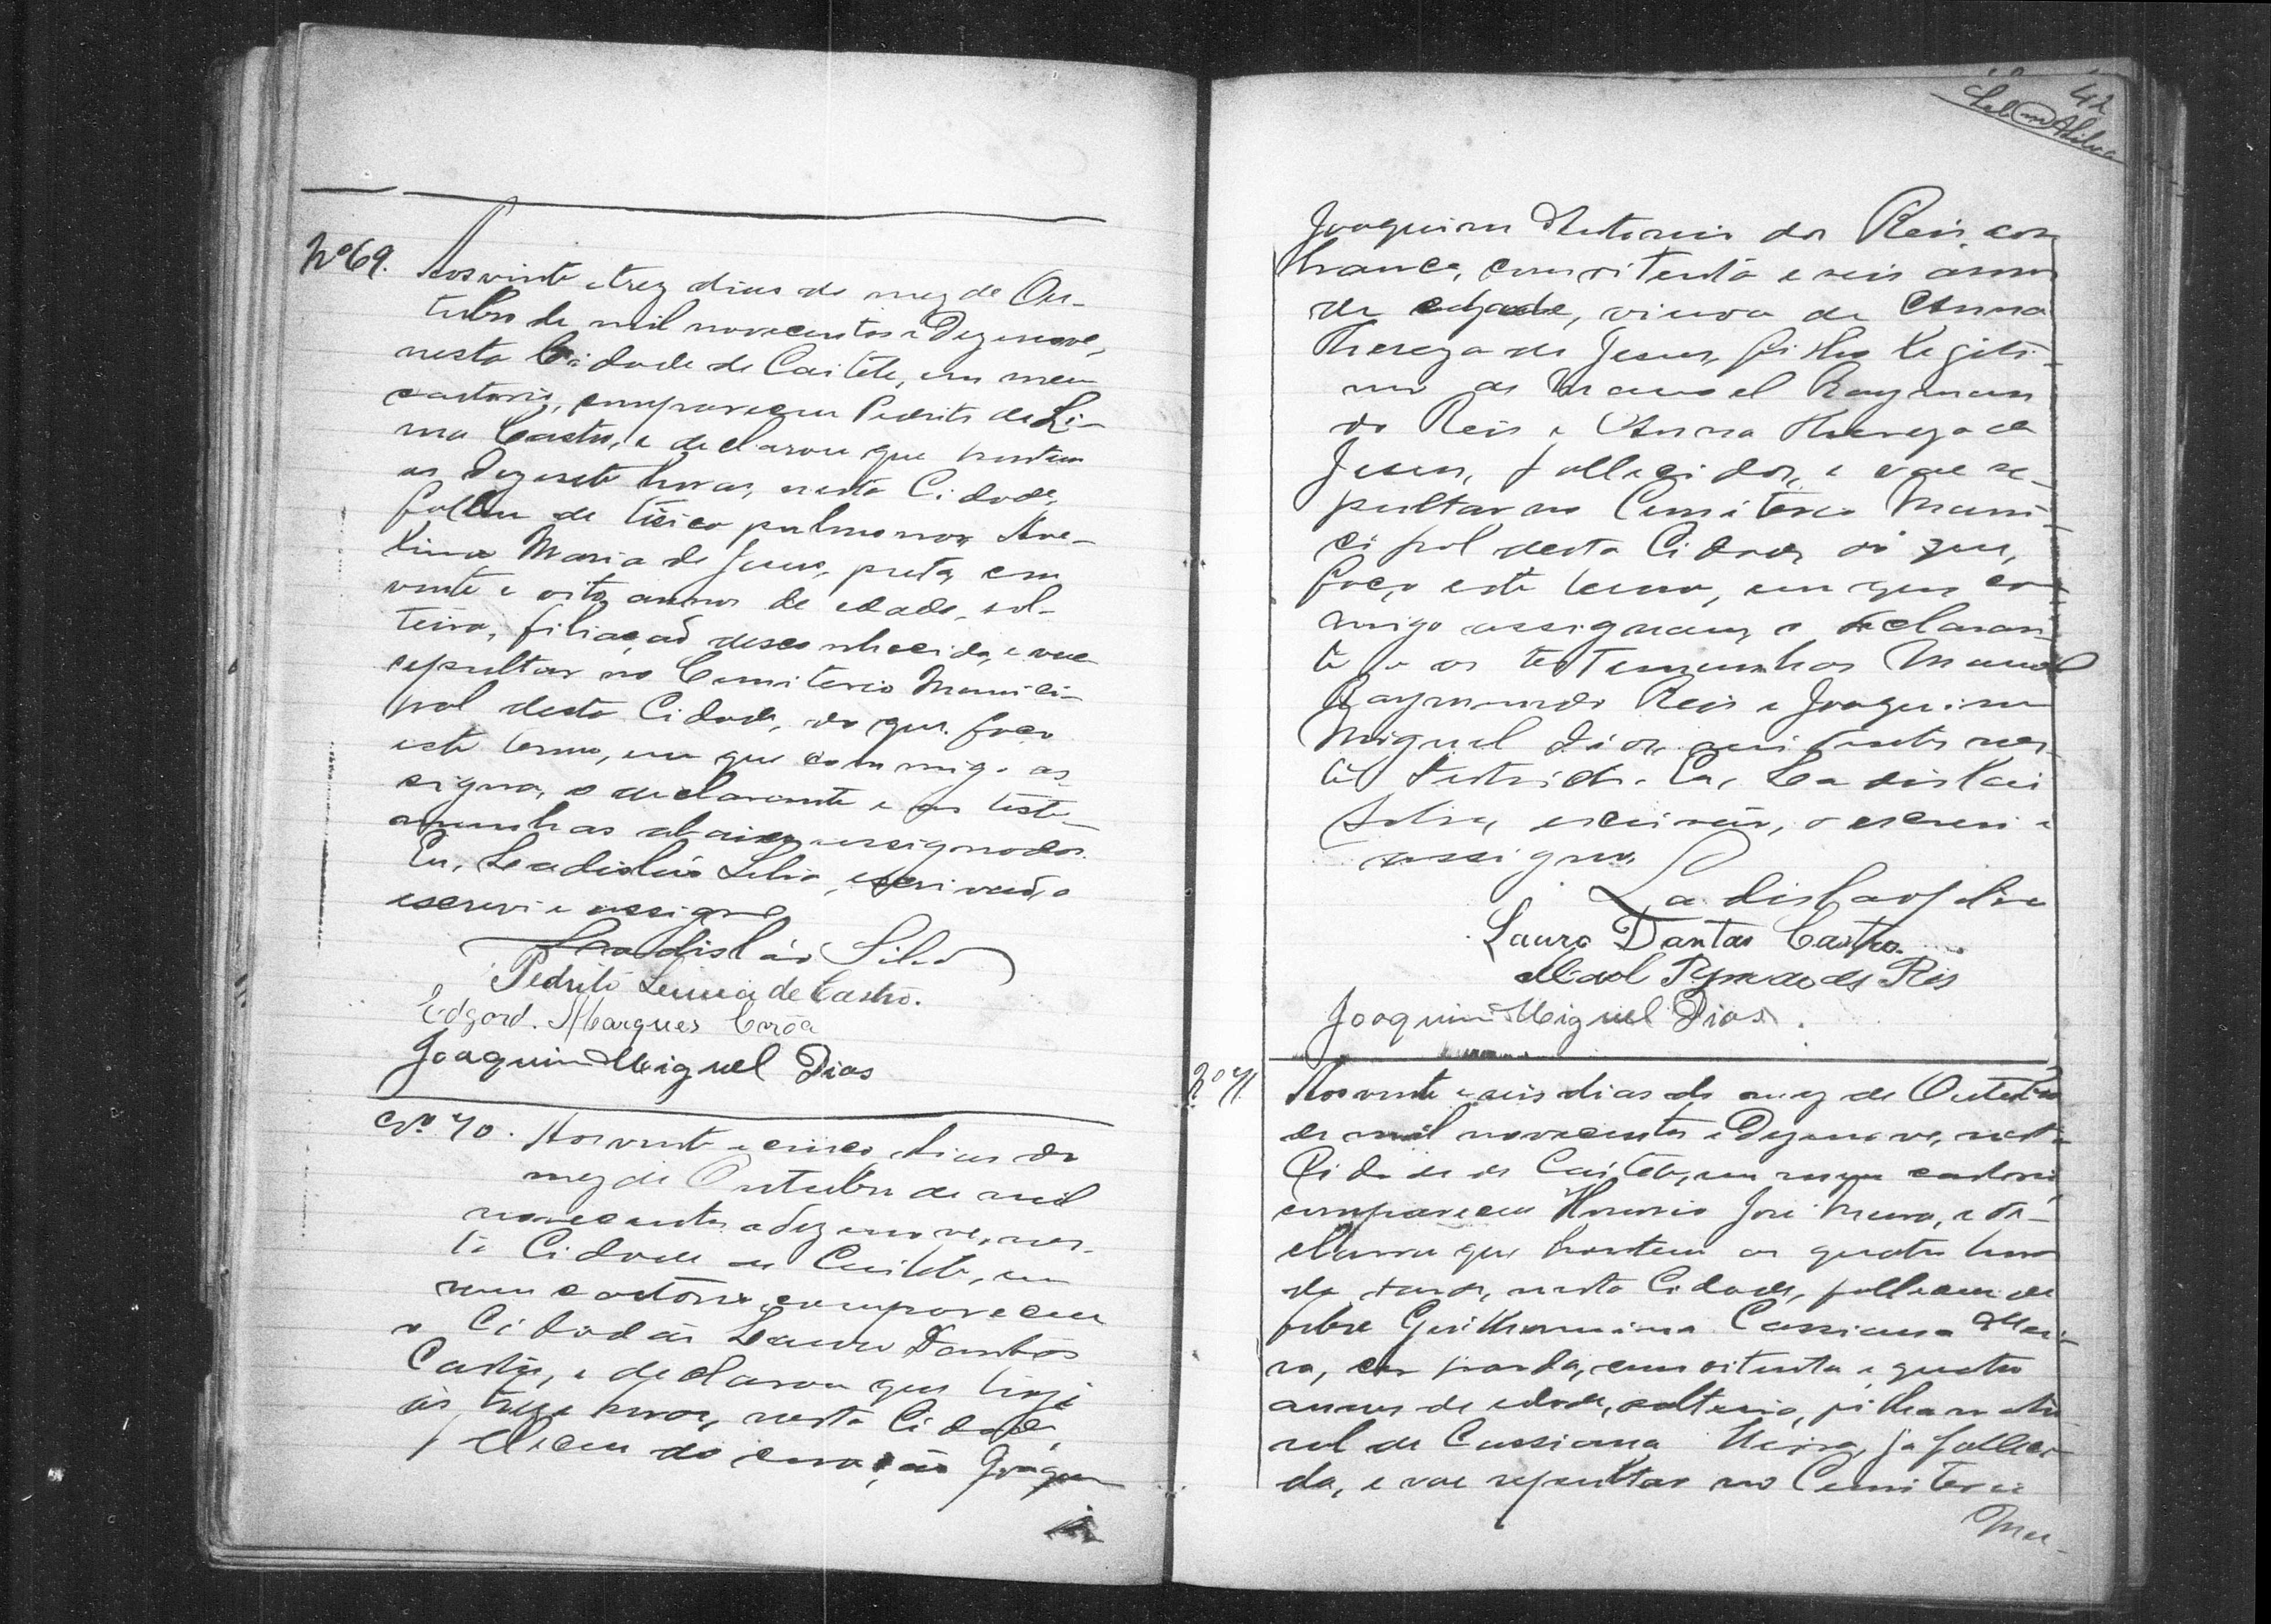 Nº 69. Aos vinte e trez dias do mez de Ou-
tubro de mil novecentos e Dezenove,
nesta Cidade de Caiteté, em meu
cartorio, compareceu Pedrito de Li-
ma Castro, e declarou que hontem
as dezesete horas, nesta Cidade,
falleceu de tisica pulmonar Ave-
lina Maria de Jesus, preta, com
vinte e oito annos de edade, sol-
teira, filiação desconhecida, e vae
sepultar no Cemiterio Munici-
pal desta Cidade, do que faço
este termo, em que commigo as
signa, o declarante e as teste-
munhas abaixo assignados.
Eu, Ladisláo Silva, escrivão, o
escrevi e assigno
Ladisláo Silva
Pedrito Lima de Castro.
Edgard. Marques
Joaquim Miguel Dias
Nº 70. Aos vinte e cinco dias do
mez de Outubro de mil
novecentos e dezenove, nes-
ta Cidade de Caiteté, em
meu cartorio, compareceu
o Cidadão Lauro Dantas
Castro, e declarou que hoje
ás treze horas, nesta Cidade,
falleceu do coração Joaquim
42
Joaquim Antonio dos Reis, cor
branca, com oitenta e seis annos
de edade, viuvo de Anna
Thereza de Jesus, filho legiti-
mo de Manoel Raymun
do Reis e Anna Thereza de
Jesus, fallecidos, e vae se-
pultar no Cemiterio Muni-
cipal desta Cidade do que,
faço este termo, em que co-
mmigo assignam o declaran-
te e as testemunhas Manoel
Raymundo Reis e Joaquim
Miguel Dias, residentes nes-
te Districto. Eu, Ladislau
Silva, escrivão, o escrevi e
assigno
Ladislao Silva
Lauro Dantas Castro.
Reis
Joaquim Miguel Dias.
Nº 71. Aos vinte e seis dias do mez de Outubro
de mil novecentos e Dezenove, nesta
Cidade de Caiteté, em meu cartorio,
compareceu Honorio José e de-
clarou que hontem as quatro horas
da tarde, nesta Cidade, falleceu de
febre Guilhermina Cassiana
cor parda, com oitenta e quatro
annos de edade, solteira, filha natu
ral de Cassiana já falleci-
da, e vae sepultar no Cemiterio
Mu-